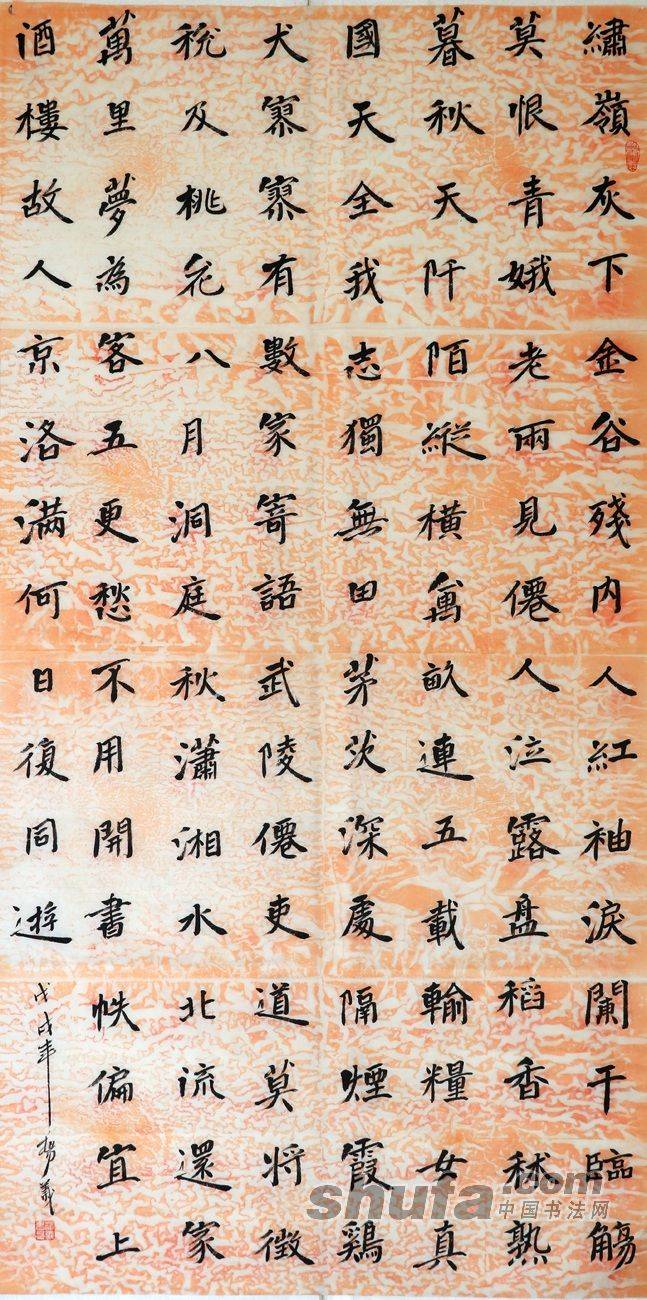 繡嶺灰下金谷殘内人紅袖淚闌干臨觴
莫恨青娥老兩見僊人泣露盤稻香秫熟
暮秋天阡陌縱橫萬畝連五載輸糧女真
國天全我志獨無田茅茨深處隔煙霞鷄
犬寥寥有數家寄語武陵僊吏道莫將徵
稅及桃花八月洞庭秋瀟湘水北流還家
萬里夢為客五更愁不用開書帙偏宜上
酒樓故人京洛滿何日復同遊
戊戌年楊義
shufa.com
中国书法网